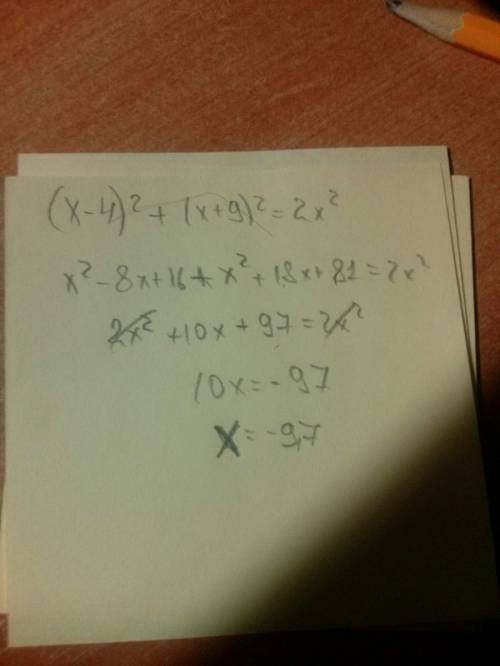 (x-4)² + (x+9)² = 2x²
x² - 8x + 16 + x² + 18x + 81 = 2x²
2x² + 10x + 97 = 2x²
10x = -97
x = -9,7